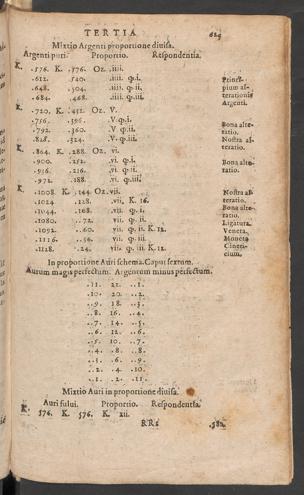 TERTIA. 629
Mixtio Argenti proportione diuisa.
Argenti puri. Proportio. Respondentia.
K. .576. K. .576. Oz. .iiii.
.612. .540. .iiii. q.i. Princi-
.648. .504. .iiii. q.ii. pium al-
.684. .468. .iiii. q.iii. terationis
Argenti.
K. .720. K. .432. Oz. V.
.756. .396. .V. q.i. Bona alte-
.792. .360. V q.ii. ratio.
.828. .324. .V. q.iii. Nostra al-
teratio.
K. .864. K. .288. Oz. vi.
.900. .252. vi. q.i. Bona alte-
.936. .216. vi. q.ii. ratio.
.972. .188. vi. q.iii.
K. .1008. K. .144. Oz. vii. Nostra al-
.1024. .128. .vii. K. 16. teratio.
.1044. .108. .vii. q.i. Bona alte-
ratio.
.1080. ..72. vii. q.ii. Ligatura.
.1092. ..60. vii. q. ii. K. 12. Veneta.
.1116. ..36. vii. q. iii. Moneta
.1128. ..24. vii. q. iii. K. 12. Cineri-
cium.
In proportione Auri schema. Caput sextum.
Aurum magis perfectum. Argentum minus perfectum.
.11. 22. ..1.
.10. 20. ..2.
..9. 18. ..3.
..8. 16. ..4.
..7. 14. ..5.
..6. 12. ..6.
..5. 10. ..7.
..4. ..8. ..8.
..3. ..6. ..9.
..2. ..4. .10.
..1. ..2. .11.
Mixtio Auri in proportione diuisa.
Auri fului. Proportio. Respondentia.
K. 576. K. 576. K. xii.
RRs .582.